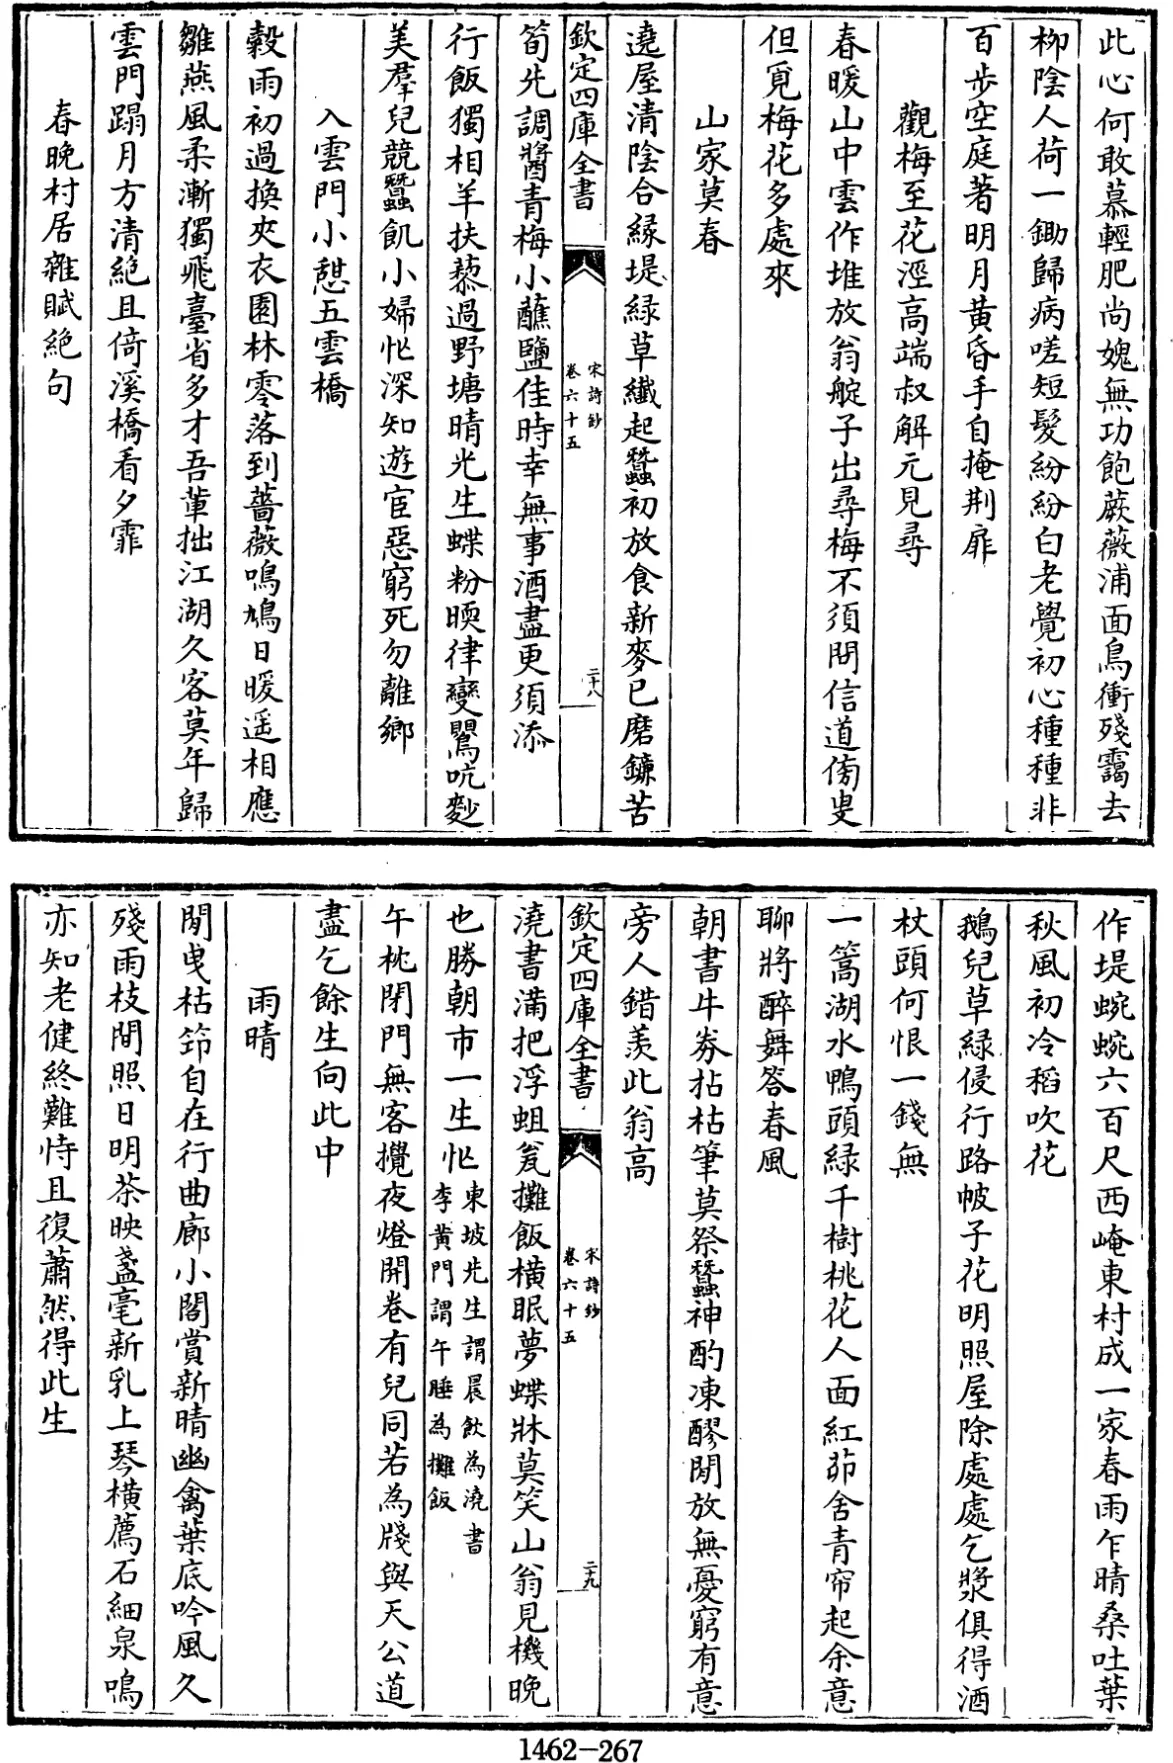 此心何敢慕輕肥尚媿無功飽蕨薇浦面鳥衝殘靄去
柳陰人荷一鋤歸病嗟短髮紛紛白老覺初心種種非
百步空庭著明月黄昏手自掩荆扉
觀梅至花涇高端叔解元見尋
春暖山中雲作堆放翁艇子出尋梅不須問信道傍叟
但覓梅花多處來
山家莫春
遶屋清陰合緣堤緑草纖起蠶初放食新麥已磨鐮苦
欽定四庫全書
宋詩鈔
卷六十五
二十八
筍先調醬青梅小蘸鹽佳時幸無事酒盡更須添
行飯獨相羊扶藜過野塘晴光生蝶粉暝律變鸎吭麨
美羣兒競蠶飢小婦忙深知遊宦惡窮死勿離鄉
入雲門小憩五雲橋
穀雨初過換夾衣園林零落到薔薇鳴鳩日暖遥相應
雛燕風柔漸獨飛臺省多才吾輩拙江湖久客莫年歸
雲門蹋月方清絶且倚溪橋看夕霏
春晚村居雜賦絶句
作堤蜿蜿六百尺西崦東村成一家春雨乍晴桑吐葉
秋風初冷稻吹花
鵝兒草緑侵行路帔子花明照屋除處處乞漿俱得酒
杖頭何恨一錢無
一篙湖水鴨頭緑千樹桃花人面紅茆舍青帘起余意
聊將醉舞答春風
朝書牛券拈枯筆莫祭蠶神酌凍醪閒放無憂窮有意
旁人錯羨此翁高
欽定四庫全書
宋詩鈔
卷六十五
二十九
澆書滿把浮蛆瓮攤飯横眠夢蝶牀莫笑山翁見機晚
也勝朝市一生忙
東坡先生謂晨飲為澆書
李黄門謂午睡為攤飯
午枕閉門無客攪夜燈開卷有兒同若為牋與天公道
盡乞餘生向此中
雨晴
閒曳枯筇自在行曲廊小閣賞新晴幽禽葉底吟風久
殘雨枝間照日明茶映盞毫新乳上琴横薦石細泉鳴
亦知老健終難恃且復蕭然得此生
1462-267